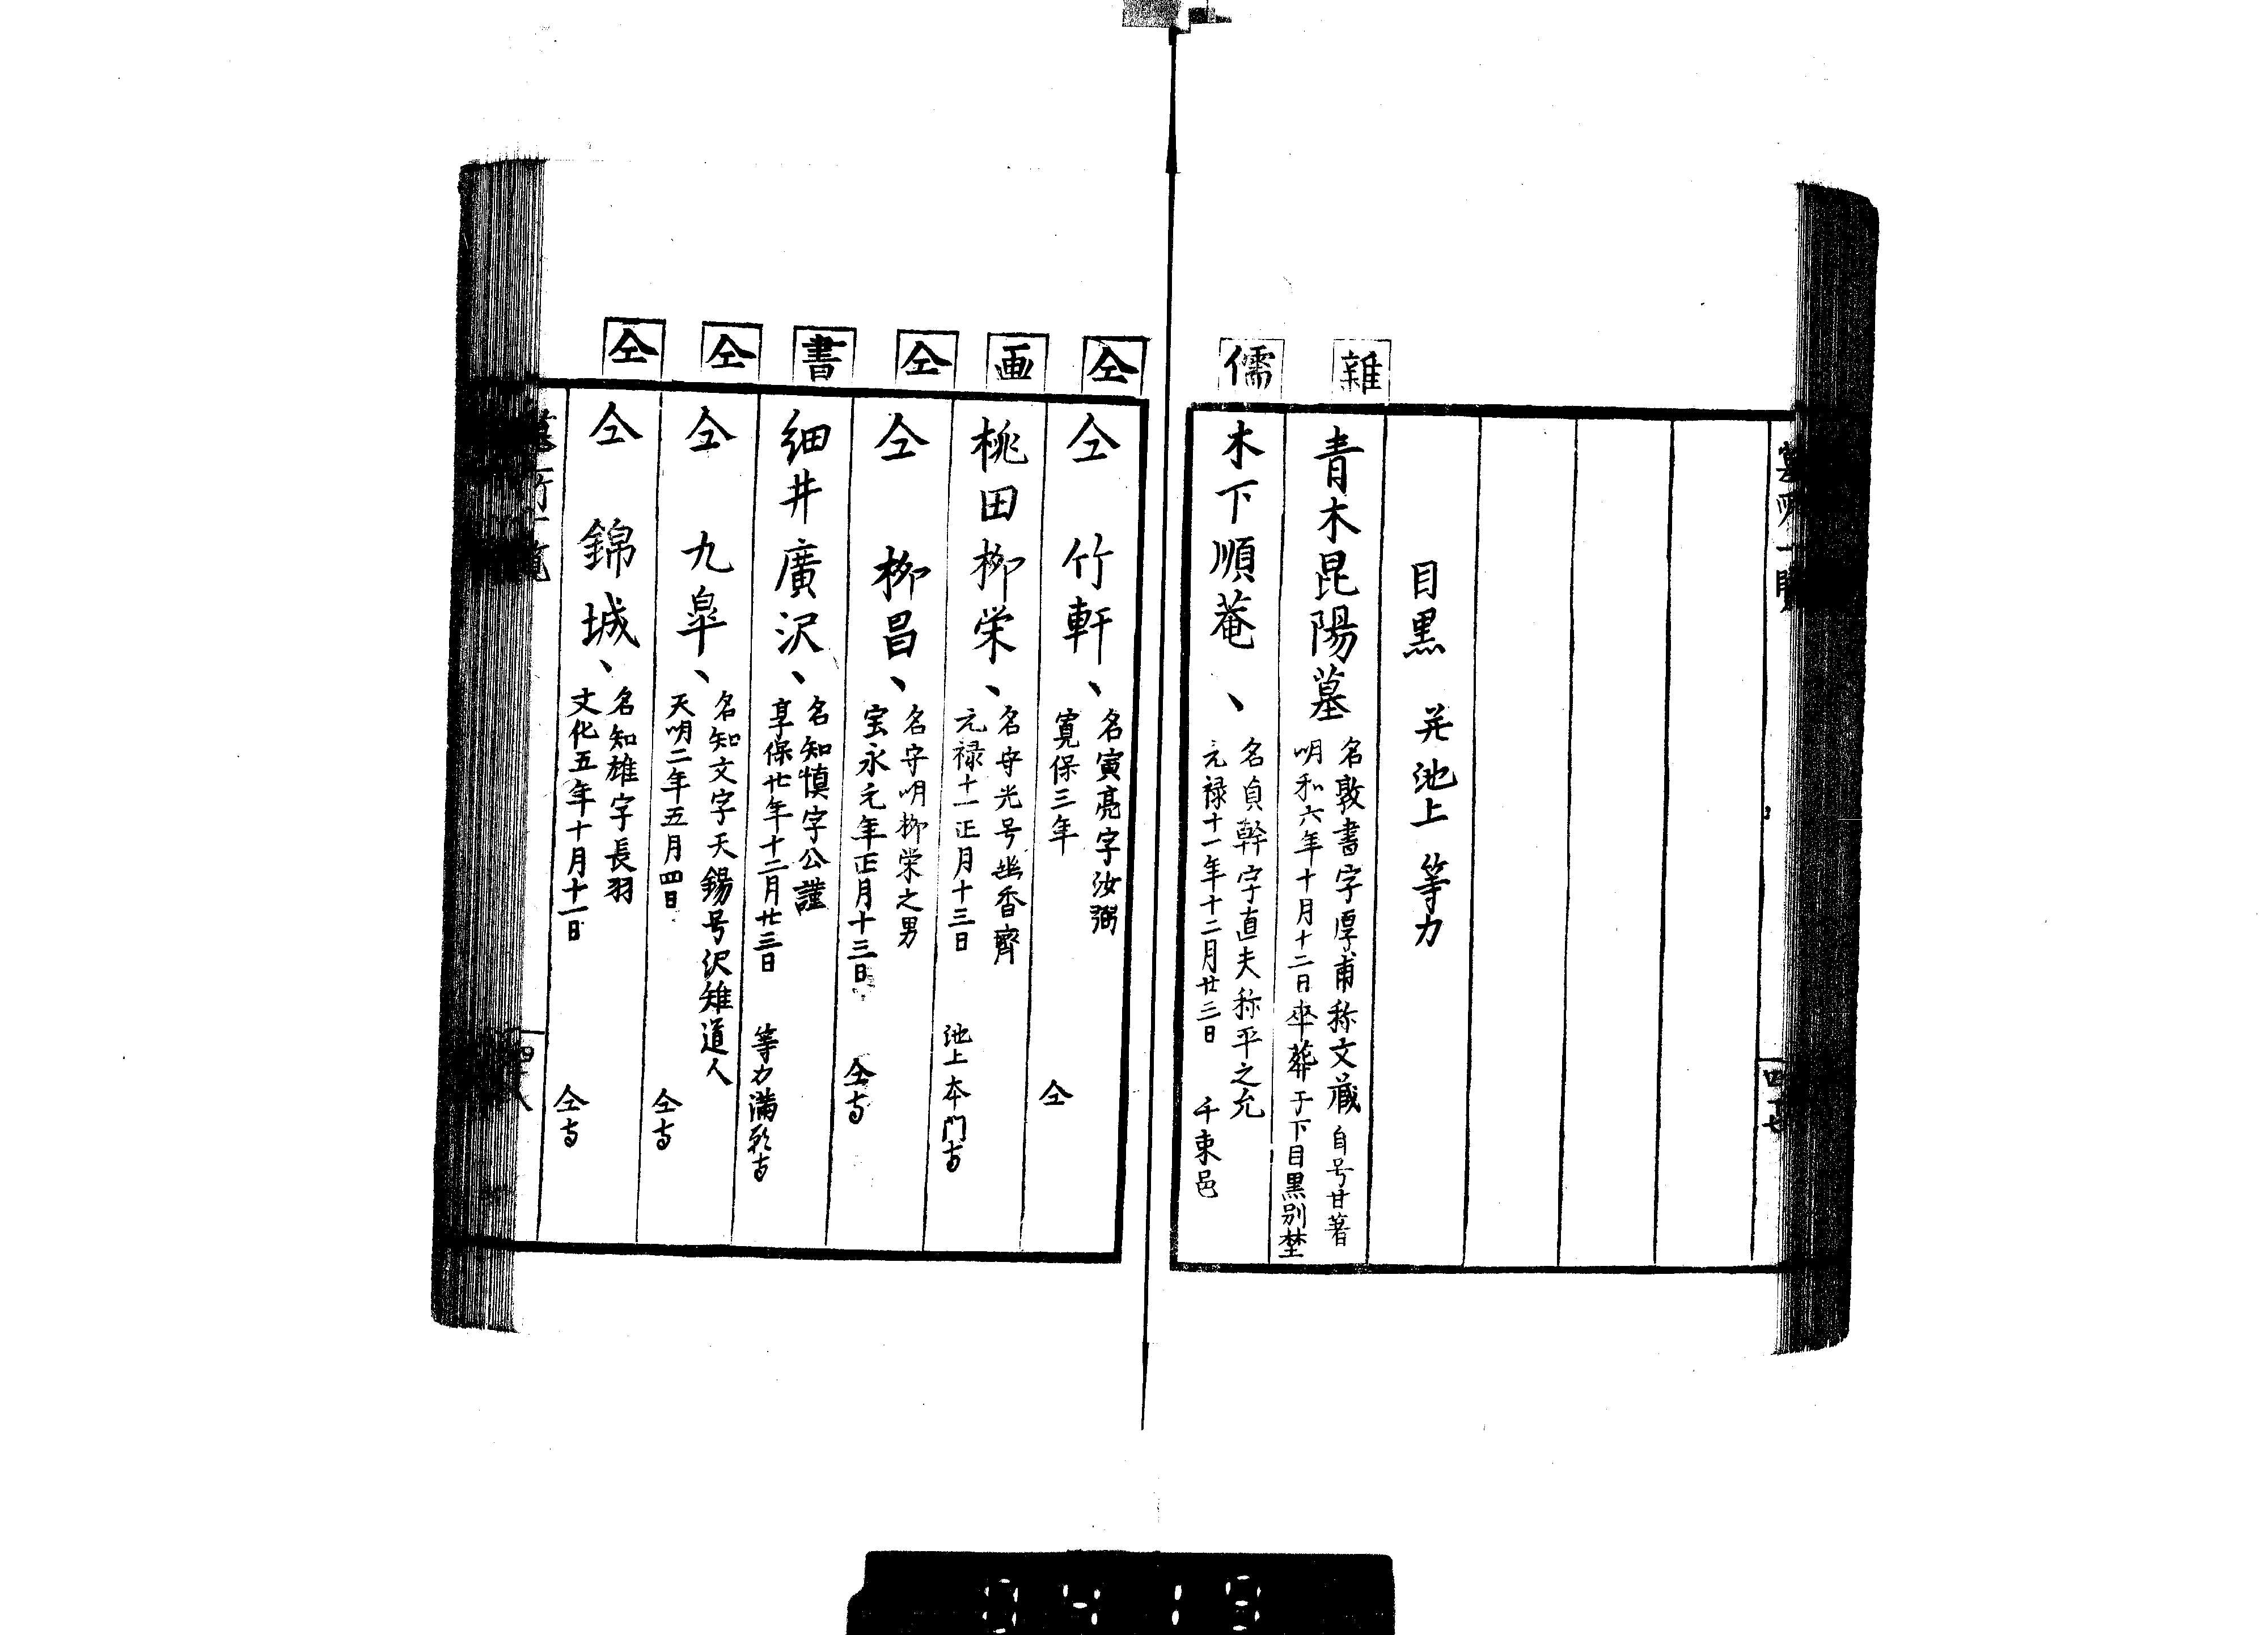 墓所一覧
四十七
目黒 并池上 等力
雜
青木昆陽墓
名敦書字厚甫称文蔵 自号甘薯
明和六年十月十二日卒葬于下目黒別埜
儒
木下順菴、
名貞幹字直夫称平之允
元禄十一年十二月廿三日 千束邑
仝
仝 竹軒、
名寅亮字汝弼
寛保三年 仝
画
桃田柳栄、
名守光号幽香齋
元禄十一正月十三日 池上本門寺
仝
仝 柳昌、
名守明柳栄之男
宝永元年正月十三日 仝寺
書
細井廣沢、
名知慎字公謹
享保廿年十二月廿三日 等力満願寺
仝
仝 九皐、
名知文字天錫号沢雉道人
天明二年五月四日 仝寺
仝
仝 錦城、
名知雄字長羽
文化五年十月十一日 仝寺
墓所一覧
四十八
0419